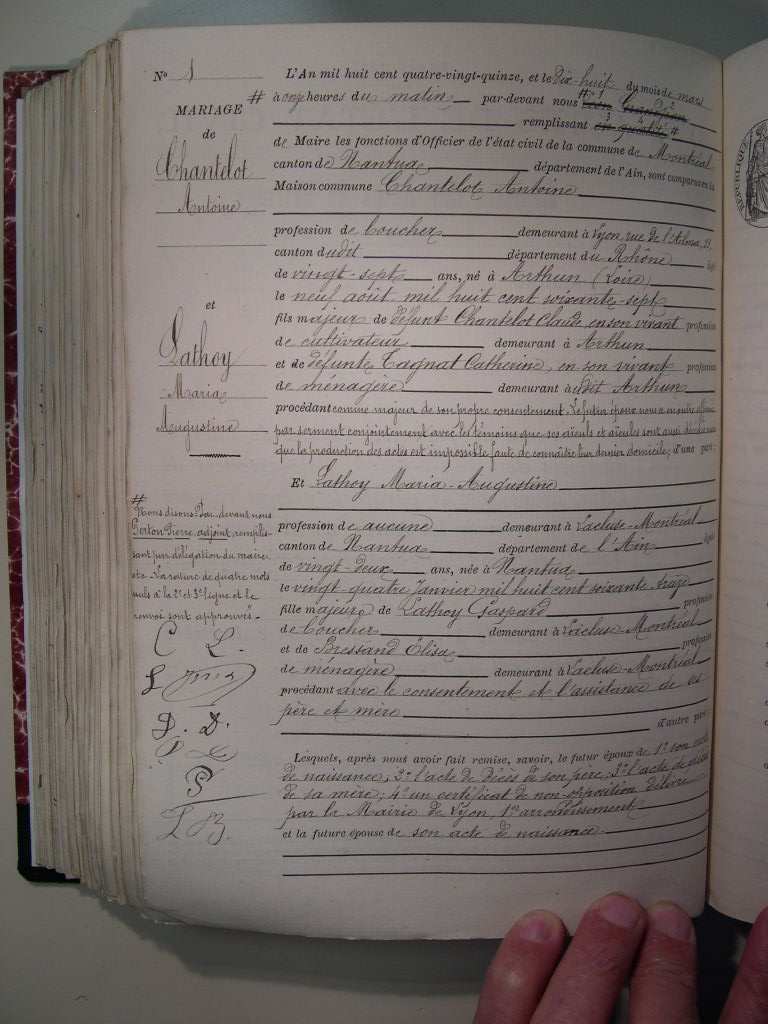 No 1
MARIAGE
de
Chantelot
Antoine
et
Lathoy
Maria
Augustine
L'An mil huit cent quatre-vingt-quinze, et le dix-huit du mois de mars
# à onze heures du matin par-devant nous #
remplissant #
de Maire les fonctions d'Officier de l'état civil de la commune de Montréal
canton de Nantua département de l'Ain, sont comparus en la
Maison commune Chantelot Antoine
profession de boucher demeurant à Lyon, rue de l'Arbre
canton dudit département du Rhône
de vingt-sept ans, né à Arthun (Loire)
le neuf août mil huit cent soixante-sept
fils majeur de défunt Chantelot Claude, en son vivant profession
de cultivateur demeurant à Arthun
et de défunte Tagnat Catherine, en son vivant profession
de ménagère demeurant à udit Arthun
procédant comme majeur de son propre consentement. Le futur époux nous a en outre affirmé
par serment conjointement avec les témoins que ses aïeuls et aïeules sont aussi décédés
que la production des actes est impossible faute de connaître leur dernier domicile; d'une part.
Et Lathoy Maria-Augustine
profession de aucune demeurant à Lacluse-Montréal
canton de Nantua département de l'Ain
de vingt-deux ans, née à Nantua
le vingt-quatre Janvier mil huit cent soixante treize
fille majeure de Lathoy Gaspard profession
de boucher demeurant à Lacluse Montréal
et de Bressand Elisa profession
de ménagère demeurant à Lacluse-Montréal
procédant avec le consentement et l'assistance de ses
père et mère
d'autre part
Lesquels, après nous avoir fait remise, savoir, le futur époux de 1º son acte
de naissance; 2º l'acte de décès de son père; 3º l'acte de décès
de sa mère; 4º un certificat de non-opposition délivré
par la Mairie de Lyon, 1er arrondissement
et la future épouse de son acte de naissance
#
Nous disons: Par devant nous
Pertou Pierre, adjoint, remplis-
sant par délégation du maire
etc. La rature de quatre mots
nuls à la 2e et 3e ligne et le
renvoi sont approuvés.
C L.
D. D.
P
L B.
RÉPUBLIQUE